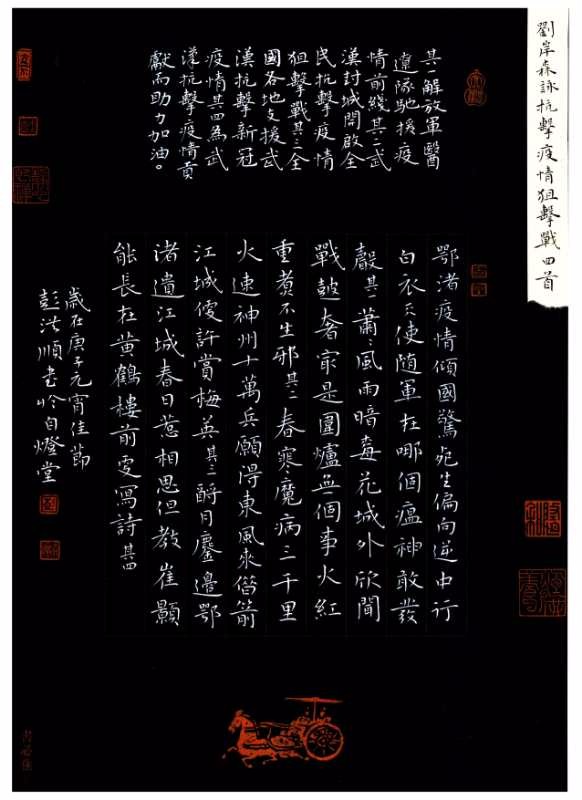 劉岸森詠抗擊疫情狙擊戰四首
其一解放軍醫
遼隊馳援疫
情前綫其二武
漢封城開啟全
民抗擊疫情
狙擊戰其三全
國各地支援武
漢抗擊新冠
疫情其四為武
漢抗擊疫情貢
獻而助力加油。
鄂渚疫情傾國驚死生偏向逆中行
白衣天使随軍在哪個瘟神敢發
聲其一蕭〻風雨暗毒花城外欣聞
戰皷奢家是圍爐無個事火紅
重煮不生邪其二春寒魔病三千里
火速神州十萬兵願得東風來借箭
江城傻許賞梅英其三酹月鏖邊鄂
渚遺江城春日惹相思但教崔顥
能長在黄鶴樓前更寫詩其四
歲在庚子元宵佳節
彭洪順書於吟白燈堂